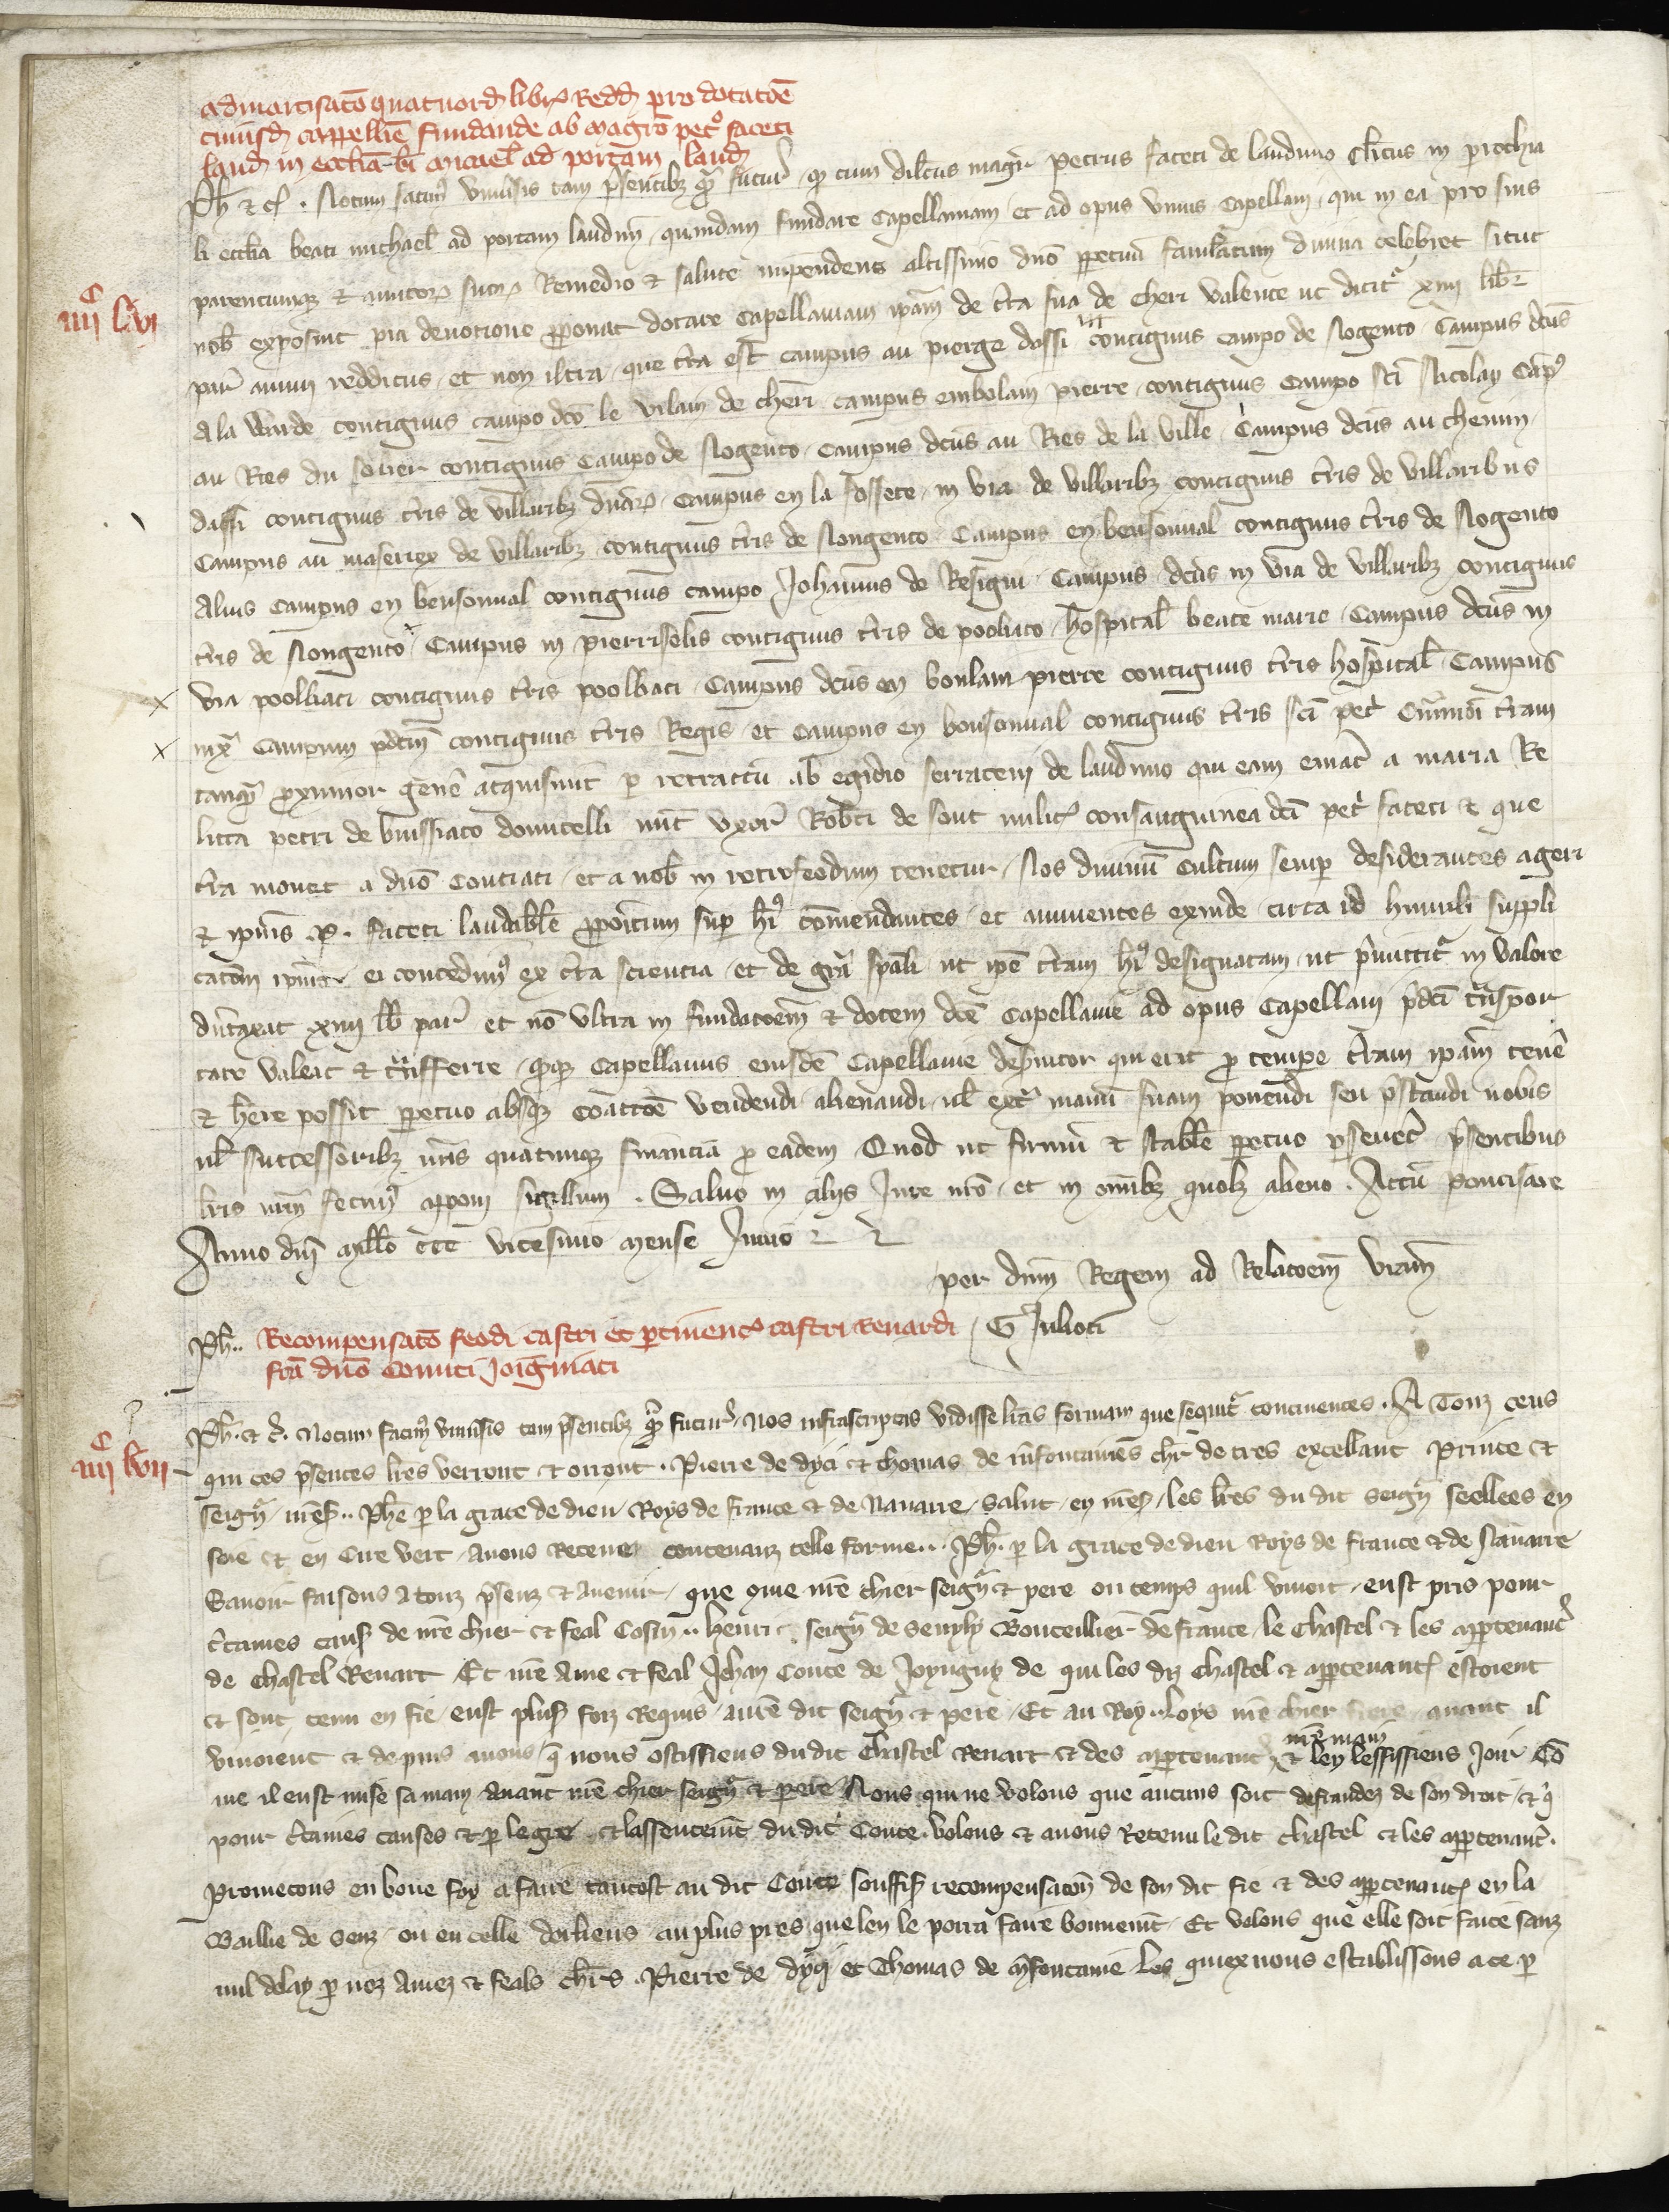 admortisatō quatuord libr Redd pro dotatōe
cuiusd cappellīe fundande ab magrō petro faceti
laud in ecclia bi michael ad portam laud
Ph et cͤ. Notum facimꝰ vniusis tam psentibꝫ qͣ futur, qꝫ cum dilcus magr Petrus faceti de lauduno Clicus in prochia
li ecclia beati michael ad portam laudun, quandam fundare Capellaniam et ad opus vnius Capellani, qui in ea pro suis
parentumqꝫ et amicoꝝ suoꝝ Remedio et salute impendens altissimo dnō ppetuū famulatum diuina celebret sicut
nob exposuit pia deuotione pponat dotare Capellaniam ipam de tra sua de Cheri valente ut dicitr xiiii libr
par annui redditus, et non ultra, que tra est campus au pierge dassi contiguus campo de Nogento, Campus dcus
A la Warde contiguus campo dco le vilain de cheri campus enbolain pierre contiguus campo sci Nicolay Campꝰ
au Ries du solier contiguus Campo de Nogento, Campus dcus au Ries de la ville, Campus dcus au chemin
dassi contiguus tris de villaribꝫ dnaꝝ, Campus en la fossete, in via de villaribꝫ contiguus tris de villaribus
Campus au maseriex de villaribꝫ contiguus tris de Nongento Campus en bensonual contiguus tris de Nogento
Alius Campus en bensonual contiguus campo Johannis de Resigni, Campus dcus in via de villaribꝫ contiguus
tris de Nongento, Campus in pierriselis contiguus tris de poolbaco, hospital beate marie, Campus dcus in
via poolbaci contiguus tris poolbaci, Campus dcus en boulain pierre contiguus tris hospital, Campus
iuxͣ campum pdcm contiguus tris Regis et Campus en bonsonual contiguus tris sci petͥ tram
tanqͣ proximior genē acquisiuit p retractū ab egidio serraceni de lauduno qui eam emat a maria Re
licta petri de buissiaco domicelli nūc vxore Robti de sont milit consanguinea dci petͥ faceti et que
tra mouet a dnō Couciaci, et a nob in retrofeodum tenetur, Nos diuinū cultum semp desiderantes ageri
et ipius P. faceti laudabile ppositum sup hͥ comendantes, et annuentes exinde, circa id humili suppli
catōm ipius, ei concedimꝰ ex cta sciencia, et de grā spali, ut ipe tram hͥ designatam, ut pmittitr in valore
dutaxat xiiii lb par et nō vltra in fundatoem et dotem dce Capellanie ad opus Capellani pdci tͣnspor
tare valeat et tͣnsferre, qꝫ Capellanus eiusde Capellanie deseruitor qui erit pro tempe tram ipam tenē
et here possit ppetuo absqꝫ coactōe vendendi, alienandi, ul extͣ manū suam ponendi seu pstandi nobis
ul successoribꝫ nris quacumqꝫ financiā pro eadem. Quod ut firmū et stabile ppetuo pseueret, psentibus
lris nrm fecimꝰ apponi sigillum. Saluo in aliis Jure nrō, et in omibꝫ quolꝫ alieno. Actū Pontisare
Anno dni Millō ccc vicesimo mense Junio
per dnm Regem ad Relatoem vram
G Julioti
Ph.. Recompensatō feodi castri et ptinenc castri Renardi
fcā dnō Comiti Joigniaci
Ph. et c. Notum facimꝰ vniusis tam psentibꝫ qͣ futur, Nos infrascriptas vidisse lras formam que sequitr continentes. A Touz ceus
qui ces psentes lres verront et orront. Pierre de dyci et thomas de mfontaines chr de tres excellant Prince et
seigr mes.. Phe p la grace de dieu Roys de france et de Nauarre, salut, en mes, les lres du dit seigr seellees en
soie et en Cire vert, Auons Receues contenanz telle forme... Ph. p la grace de dieu Roys de france et de Nauarre
Sauoir faisons a touz psenz et Auenir, que que nre chier seigr et pere ou temps quil viuoit, eust pris pour
ctaines caus de nre chier et feal Cosin.. henri. seigr de Seuyly Bouteillier de france, le Chastel et les appartenanc
de Chastel Renart Et nre Ame et feal Jehan Conte de Joyngny de qui les diz Chastel et appartenanc estoient
et sont tenu en fie, eust plus foiz Requis, a nre dit seigr et pere, Et au Roy. Loys nre chier frere, auant il
viuoient et depuis auons q̄ nous ostissiens du dit Chastel Renart et des appartenanc nre main et len lessissiens Joir Co
me il eust mise sa main auant nre chier seigr et pere Nous qui ne volons que aucuns soit defraudez de son droit, et q̄
pour ctaines causes et p le gre et lassentemt du dit Conte, Volons et auons Retenu le dit chastel et les appartenanc.
Prometons en bone foy a faire tantost au dit Conte souffis recompensatōn de son dit fie et des appartenanc en la
Baillie de Senz, ou en celle dorliens au plus pres que len le porra faire bonnemt, Et volons que elle soit faite sanz
nul delay p noz Amez et feals chrs. Pierre de dyci et Thomas de mfontaine Les quiex nous establissons a ce p
iiiiᶜ lvi
iiiiᶜ lvii